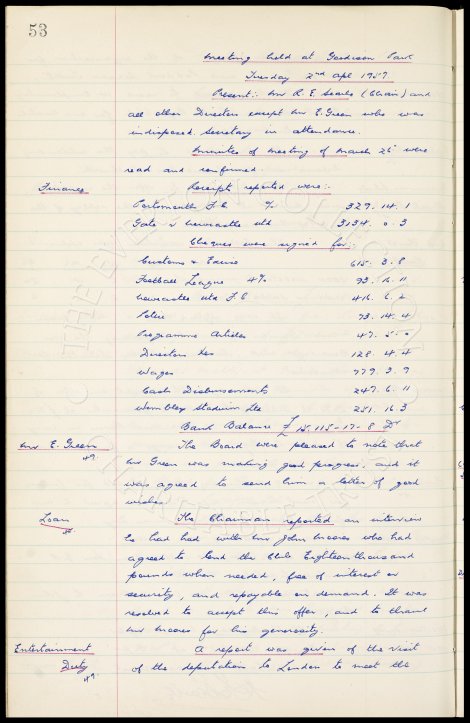 53
Meeting held at Goodison Park
Tuesday 2nd Apl 1957
Present:- Mr R. E. Searle (Chair) and
all other Directors except Mr E. Green who was
indisposed. Secretary in attendance.
Minutes of meeting of March 26 were
read and confirmed.
Finance Receipts reported were:-
Portsmouth F.C % 327. 14. 1
Gate v Newcastle Utd 3134. 0. 3
Cheques were signed for:-
Customs & Excise 615. 3. 8
Football League 4% 93. 16. 11
Newcastle Utd F.C 416. 6. 2
Police 73. 14. 4
Programme Articles 47. 5. 0
Directors Exs 128. 4. 4
Wages 779. 3. 9
Cash Disbursements 247. 6. 11
Wembley Stadium Ltd 251. 16 3
Bank Balance £ 15,115-17-8 Dr
Mr E. Green The Board were pleased to note that
Mr Green was making good progress, and it
was agreed to send him a letter of good
wishes.
Loan The Chairman reported an interview
he had had with Mr John Moores who had
agreed to lend the Club Eighteen thousand
pounds when needed, free of interest or
security, and repayable on demand. It was
resolved to accept this offer, and to thank
Mr Moores for his generosity.
Entertainment A report was given of the visit
Duty of the deputation to London to meet the
THE EVERTON COLLECTION
CHARITABLE TRUST